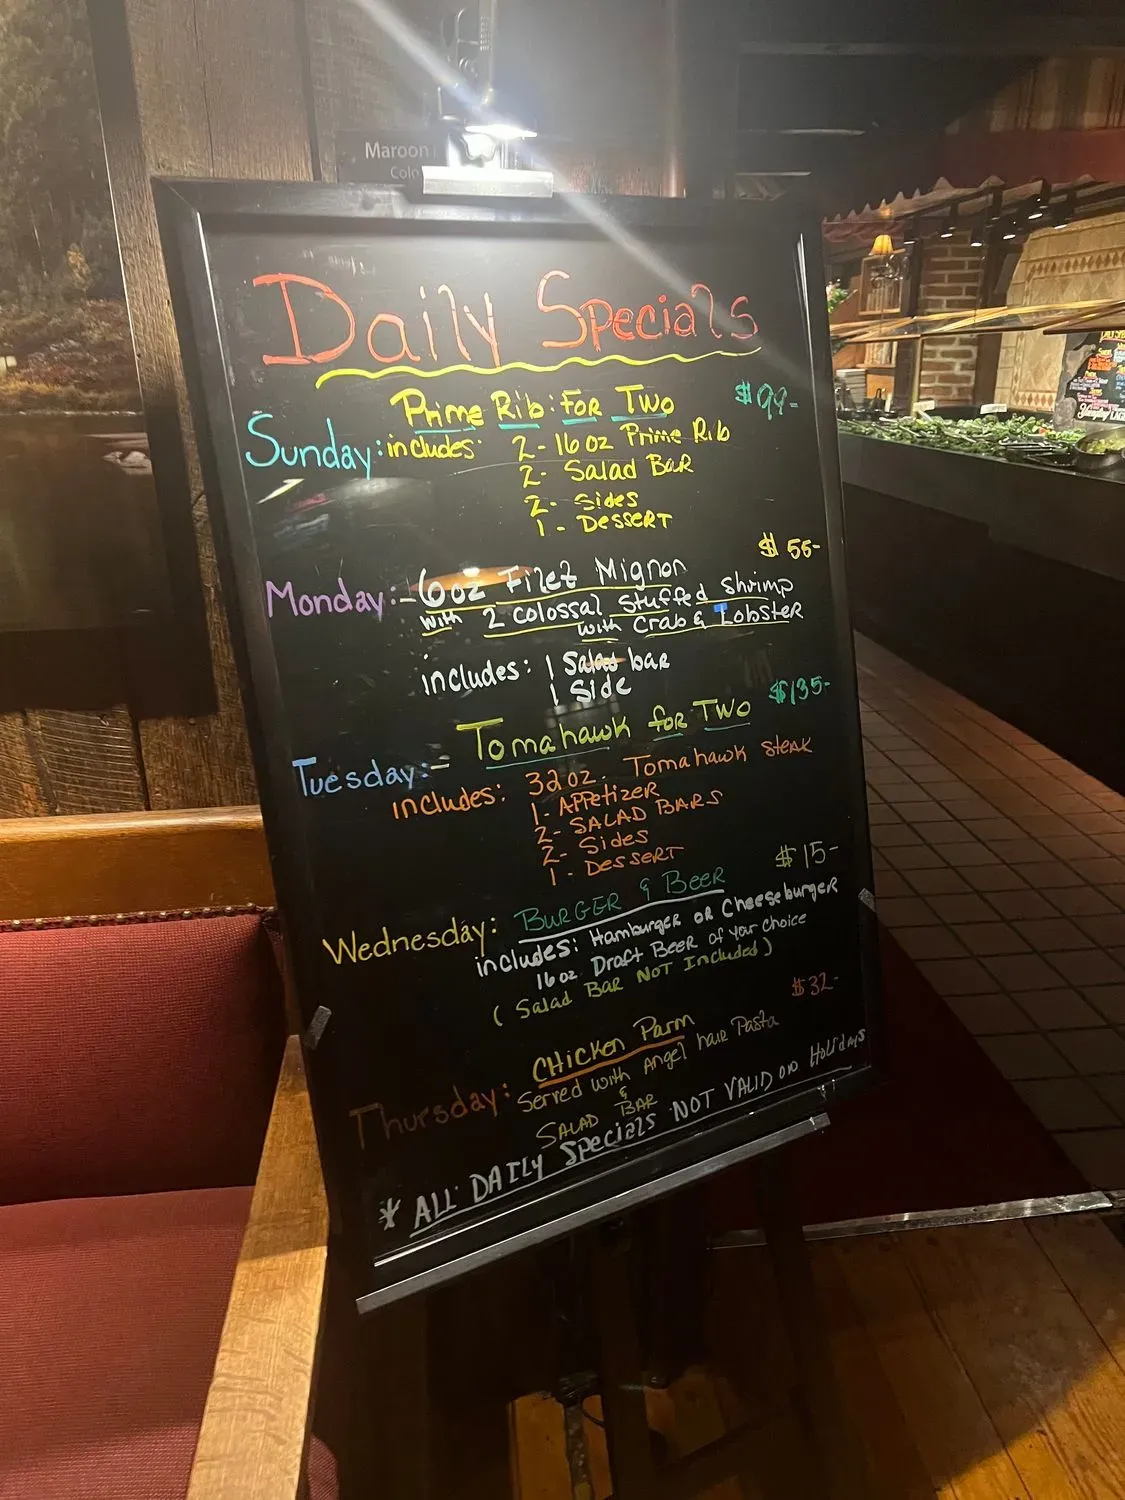 Maroon
Colo
Daily Specials
Prime Rib: For Two $99-
Sunday: includes: 2- 16 oz Prime Rib
2- Salad Bar
2- Sides
1- Dessert
$55-
Monday:- 6oz Filet Mignon
with 2 colossal stuffed shrimp
with crab & Lobster
includes: 1 Salad bar
1 Side
$135-
Tomahawk for Two
Tuesday:-
includes: 32oz. Tomahawk steak
1- Appetizer
2- SALAD BARS
2- Sides
1- Dessert
$15-
Wednesday: BURGER & Beer
includes: Hamburger or Cheeseburger
16oz Draft Beer of your choice
(Salad Bar NOT Included)
$32-
CHicken Parm
Thursday: Served with Angel hair Pasta
&
SALAD BAR
* ALL DAILy Specials NOT VALID on Holidays